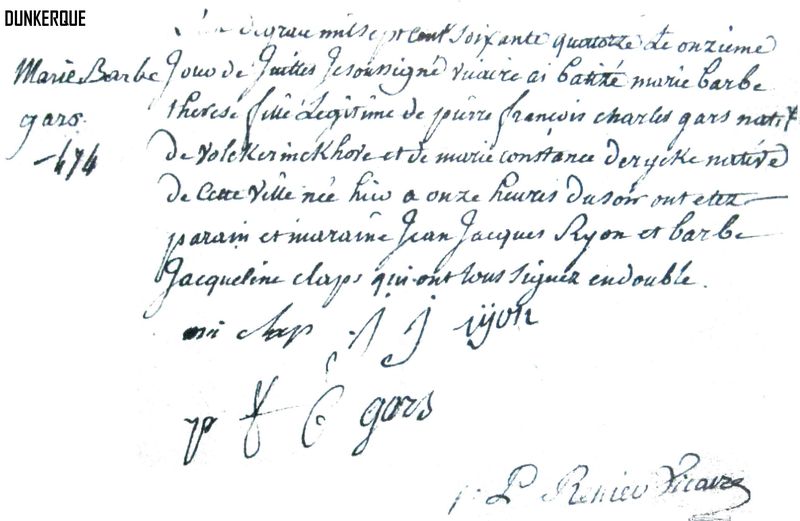 DUNKERQUE
L'an de grace mil sept cent soixante quatorze Le onzieme
Marie Barbe
gars
474
Jour de Juillet Je soussigné vicaire ai batizé marie barbe
therese fille Legitime de pierre françois charles gars natif
de volckerinckhove et de marie constance derycke native
de Cette Ville née hier a onze heures du soir ont etez
parain et maraine Jean Jacques Ryon et barbe
Jacqueline claps qui ont tous signez en double.
clap J J rÿon
p f C gars
P Vicaire